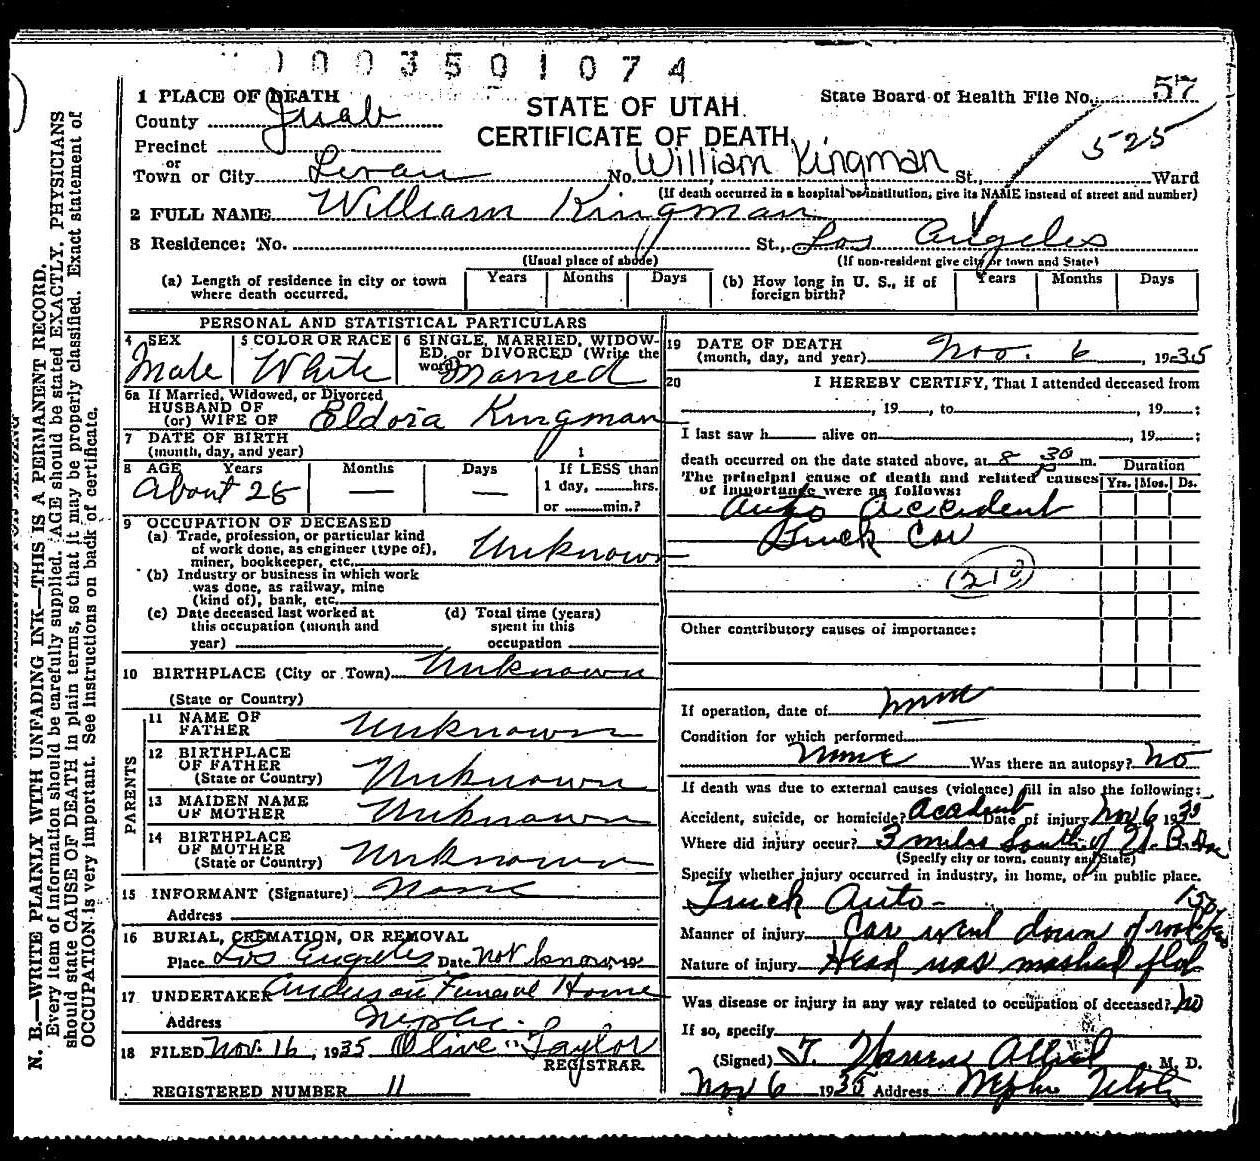 1003501074
1 PLACE OF DEATH
STATE OF UTAH
CERTIFICATE OF DEATH
State Board of Health File No. 57
525
County Juab
Precinct
or
Town or City Levan No. William Kingman St., Ward
(If death occurred in a hospital or institution, give its NAME instead of street and number)
2 FULL NAME William Kingman
3 Residence: No. St., Los Angeles
(Usual place of abode) (If non-resident give city or town and State)
(a) Length of residence in city or town where death occurred. Years Months Days
(b) How long in U. S., if of foreign birth? Years Months Days
PERSONAL AND STATISTICAL PARTICULARS
4 SEX Male
5 COLOR OR RACE White
6 SINGLE, MARRIED, WIDOWED, or DIVORCED (Write the word) Married
6a If Married, Widowed, or Divorced
HUSBAND OF
(or) WIFE OF Eldora Kingman
7 DATE OF BIRTH
(month, day, and year) 1
8 AGE Years Months Days If LESS than
About 28 — — 1 day, hrs.
or min.?
9 OCCUPATION OF DECEASED
(a) Trade, profession, or particular kind
of work done, as engineer (type of),
miner, bookkeeper, etc. Unknown
(b) Industry or business in which work
was done, as railway, mine
(kind of), bank, etc.
(c) Date deceased last worked at
this occupation (month and
year)
(d) Total time (years)
spent in this
occupation
10 BIRTHPLACE (City or Town) Unknown
(State or Country)
PARENTS
11 NAME OF
FATHER Unknown
12 BIRTHPLACE
OF FATHER
(State or Country) Unknown
13 MAIDEN NAME
OF MOTHER Unknown
14 BIRTHPLACE
OF MOTHER
(State or Country) Unknown
15 INFORMANT (Signature) None
Address
16 BURIAL, CREMATION, OR REMOVAL
Place Los Angeles Date Not known, 19
17 UNDERTAKER Anderson Funeral Home
Address Nephi
18 FILED Nov. 16, 1935 Olive Taylor
REGISTRAR.
REGISTERED NUMBER 11
19 DATE OF DEATH
(month, day, and year) Nov. 6, 1935
20 I HEREBY CERTIFY, That I attended deceased from
, 19 , to , 19 ;
I last saw h alive on , 19 ;
death occurred on the date stated above, at 8 30 P m.
The principal cause of death and related causes
of importance were as follows:
Duration
Yrs. Mos. Ds.
Auto Accident
Truck Car
(210)
Other contributory causes of importance:
If operation, date of none
Condition for which performed
None Was there an autopsy? No
If death was due to external causes (violence) fill in also the following:
Accident, suicide, or homicide? Accident Date of injury Nov 6 1935
Where did injury occur? 3 miles South of
(Specify city or town, county and State)
Specify whether injury occurred in industry, in home, or in public place.
Truck Auto - 150
Manner of injury Car went down
Nature of injury Head was mashed flat
Was disease or injury in any way related to occupation of deceased? No
If so, specify
(Signed) M. D.
Nov 6 1935 Address Nephi Utah
N. B.—WRITE PLAINLY WITH UNFADING INK—THIS IS A PERMANENT RECORD.
Every item of information should be carefully supplied. AGE should be stated EXACTLY. PHYSICIANS
should state CAUSE OF DEATH in plain terms, so that it may be properly classified. Exact statement of
OCCUPATION is very important. See instructions on back of certificate.